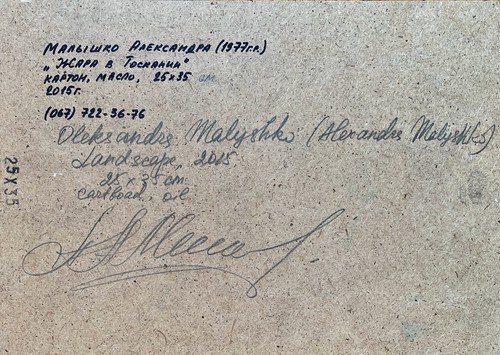 Малышко Александра (1977г.р.)
„Жара в Тоскании"
картон, масло, 25х35 см
2015г.
(067) 722-36-76
Oleksandra Malyshko (Alexandra Malyshko)
Landscape, 2015
25 x 35 cm
cartboad, oil
25 X 35